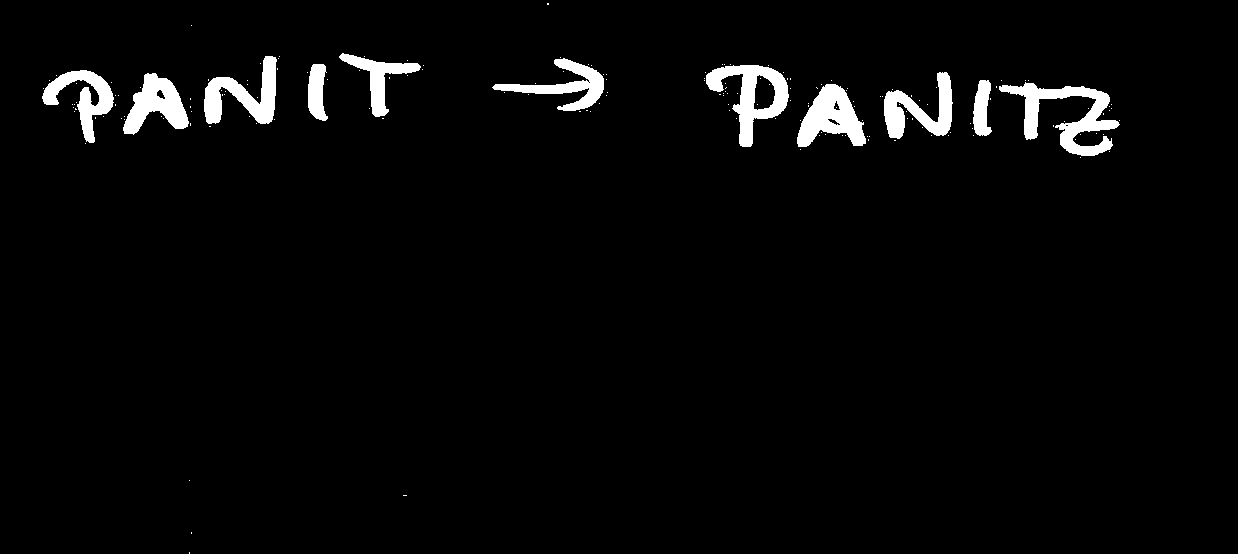 PANIT → PANITZ